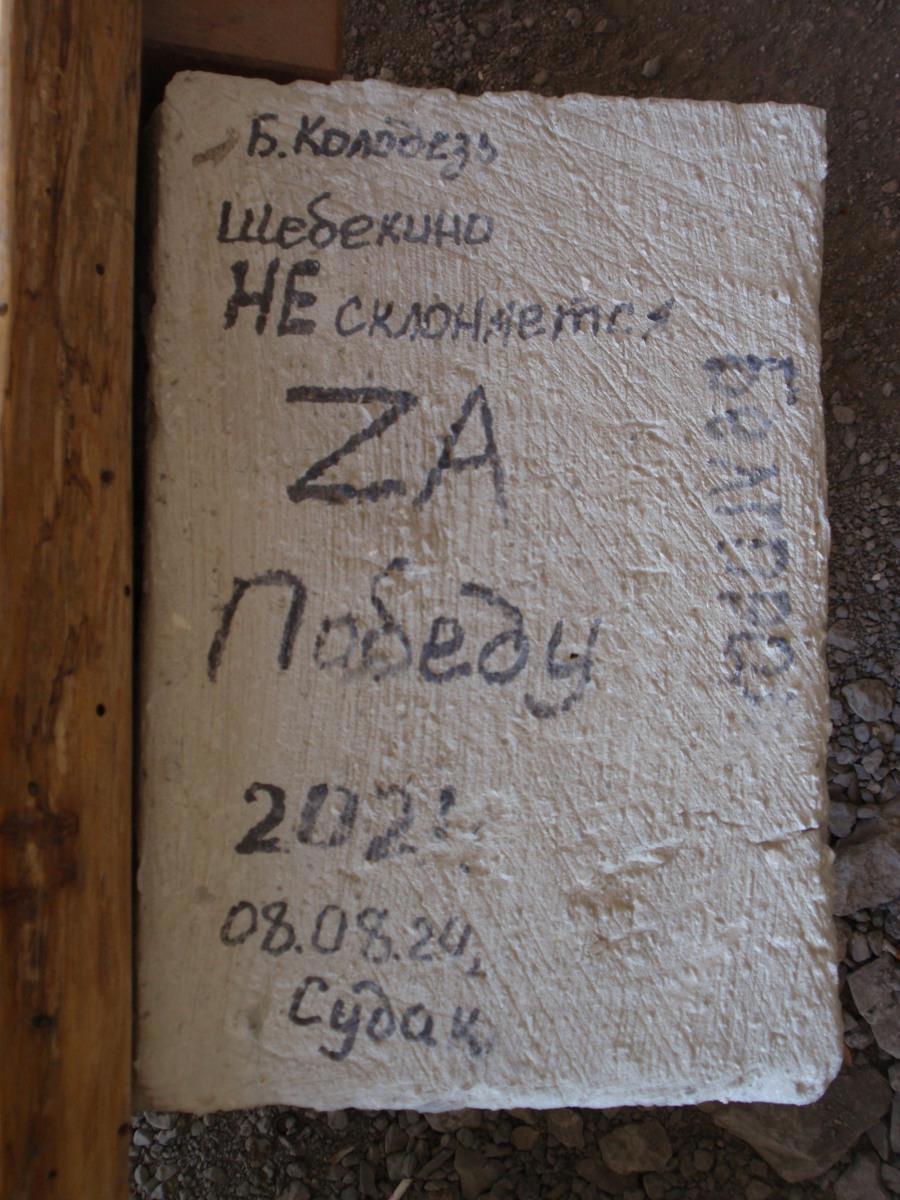 Б. Колодезь
Шебекино
НЕ склоняется
ZA
Победу
2024
08.08.24,
Судак
Белгород